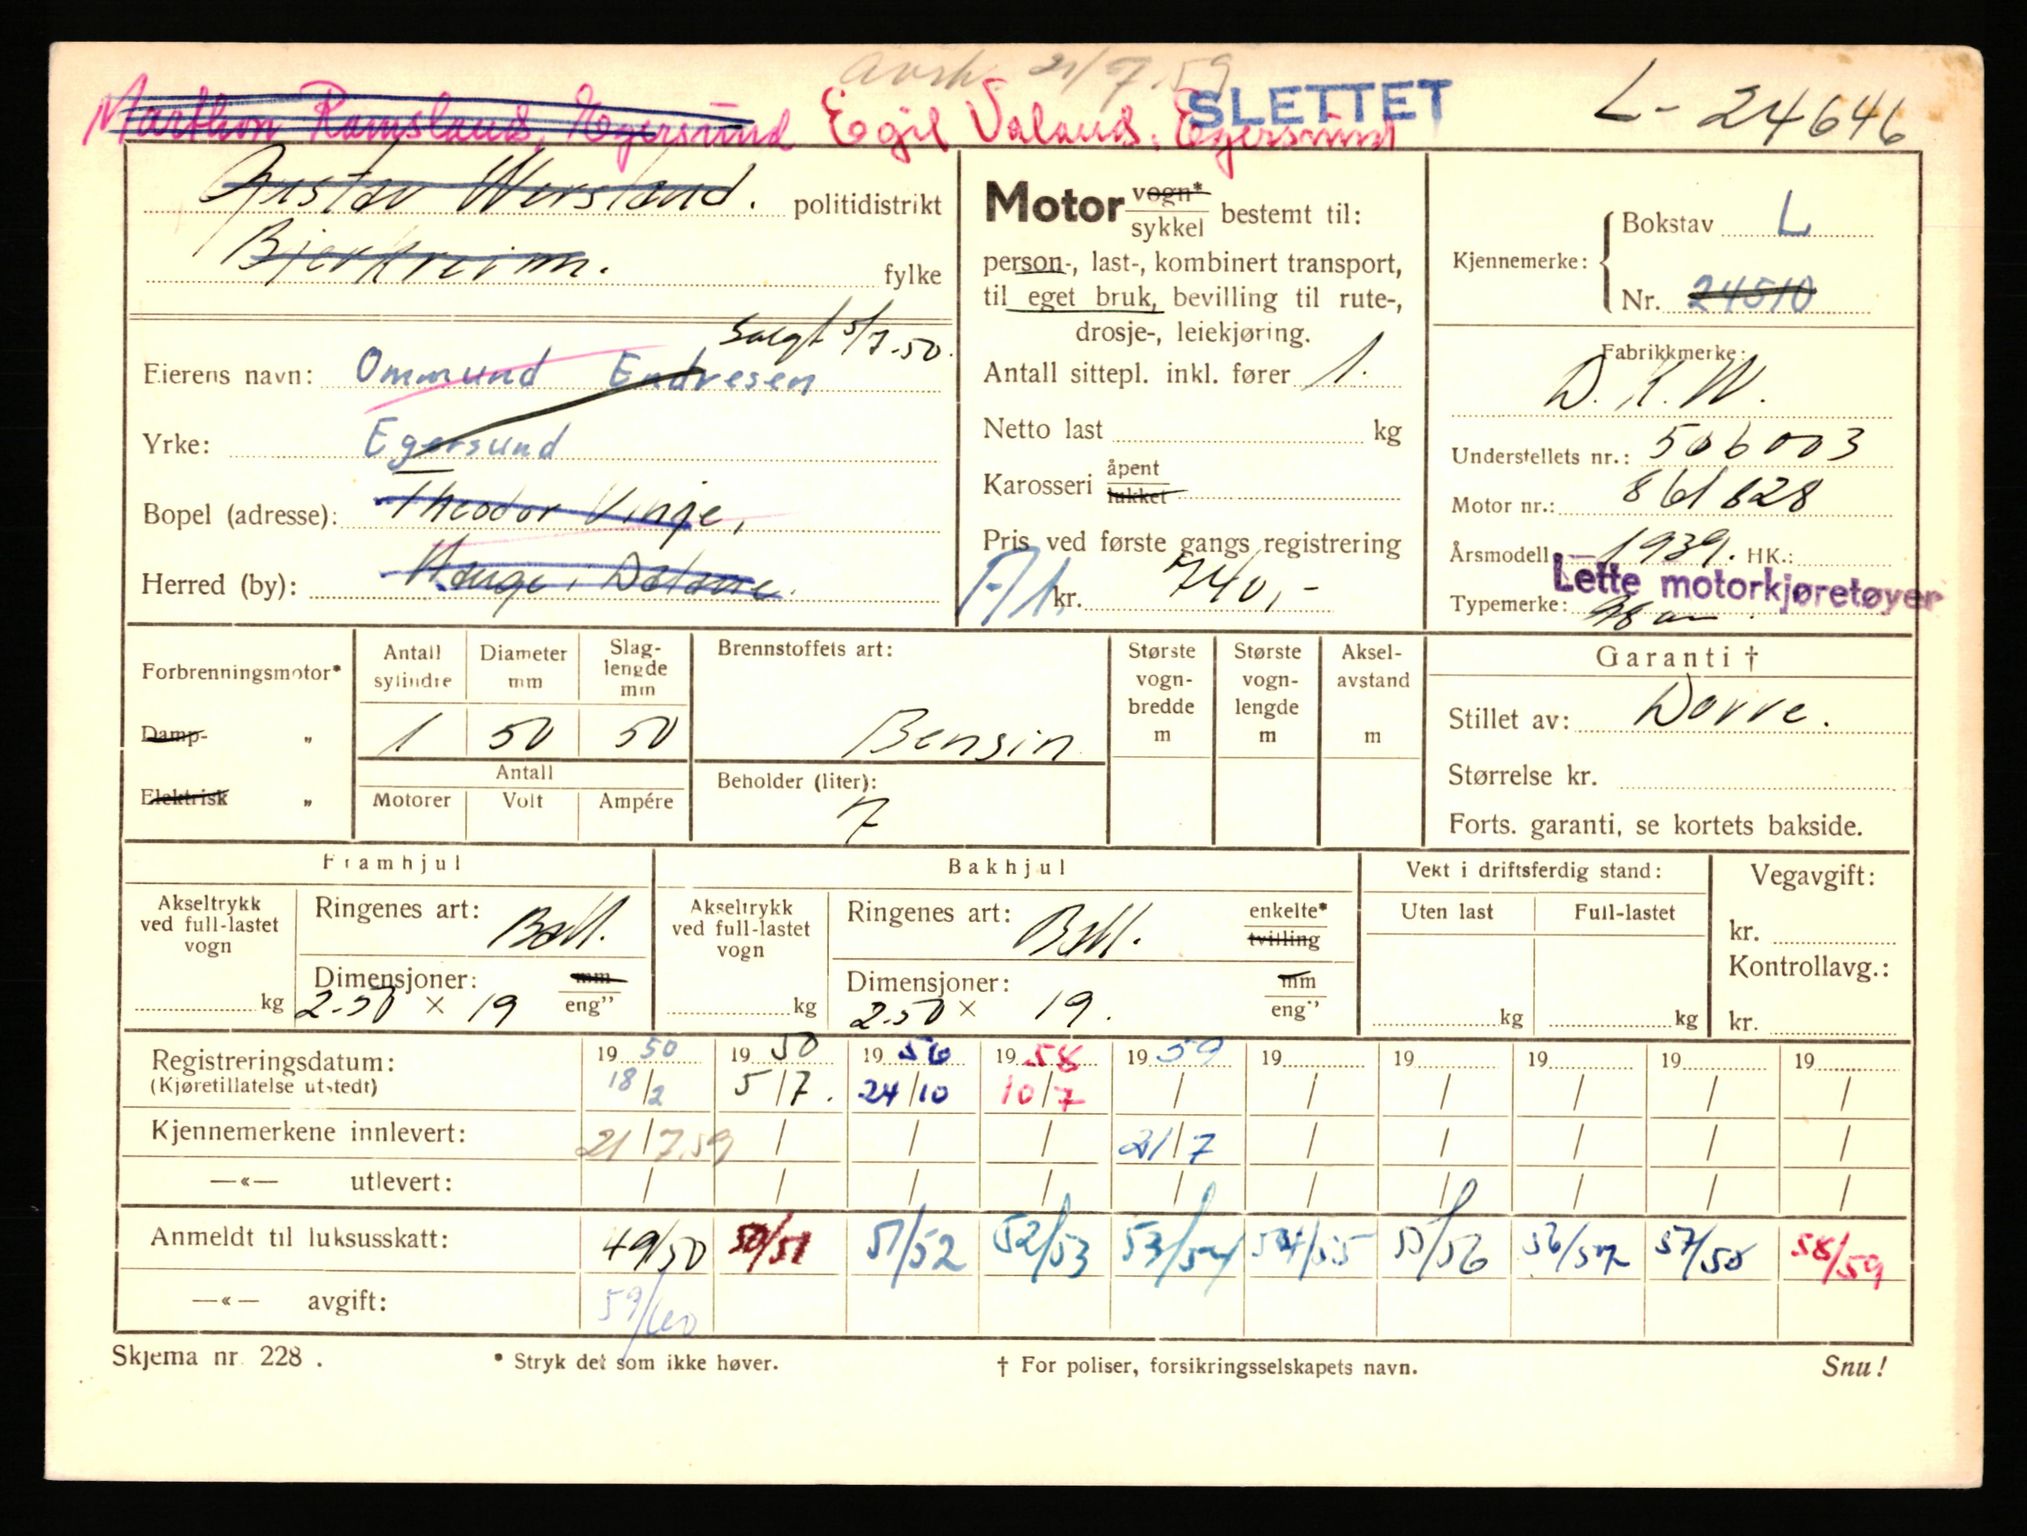 Avsk. 21/7.59
SLETTET
L-24646
Marthon Ramsland, Egersund Egil Valand, Egersund
Gustav Wersland. politidistrikt
Bjerkreim. fylke
Salgt 5/7-50.
Eierens navn: Ommund Endresen
Yrke: Egersund
Bopel (adresse): Theodor Vinje,
Herred (by): Hauge i Dalane.
Motor vogn* sykkel bestemt til:
person-, last-, kombinert transport,
til eget bruk, bevilling til rute-,
drosje-, leiekjøring.
Antall sittepl. inkl. fører 1.
Netto last kg
Karosseri åpent lukket
Pris ved første gangs registrering
kr. 740,-
Kjennemerke: Bokstav L
Nr. 24510
Fabrikkmerke:
D.K.W.
Understellets nr.: 506003
Motor nr.: 861828
Årsmodell 1939. HK.:
Lette motorkjøretøyer
Typemerke:
Forbrenningsmotor*
Damp- "
Elektrisk "
Antall sylindre
Diameter mm
Slag-lengde mm
1 50 50
Antall
Motorer Volt Ampére
Brennstoffets art:
Bensin
Beholder (liter):
7
Største vogn-bredde m
Største vogn-lengde m
Aksel-avstand m
Garanti †
Stillet av: Dovre.
Størrelse kr.
Forts. garanti, se kortets bakside.
Framhjul
Akseltrykk ved full-lastet vogn
kg
Ringenes art: Ball.
Dimensjoner: mm eng"
2.50 × 19
Bakhjul
Akseltrykk ved full-lastet vogn
kg
Ringenes art: Ball. enkelte* tvilling
Dimensjoner: mm eng"
2.50 × 19.
Vekt i driftsferdig stand:
Uten last Full-lastet
kg kg
Vegavgift:
kr.
Kontrollavg.:
kr.
Registreringsdatum: 19 50 19 50 19 56 19 58 19 59 19 19 19 19 19
(Kjøretillatelse utstedt) 18/2 5/7. 24/10 10/7 / / / / / /
Kjennemerkene innlevert: 21/7.59 / / / 21/7 / / / / /
—«— utlevert: / / / / / / / / / /
Anmeldt til luksusskatt: 49/50 50/51 51/52 52/53 53/54 54/55 55/56 56/57 57/58 58/59
—«— avgift: 59/60
Skjema nr. 228.
* Stryk det som ikke høver.
† For poliser, forsikringsselskapets navn.
Snu!